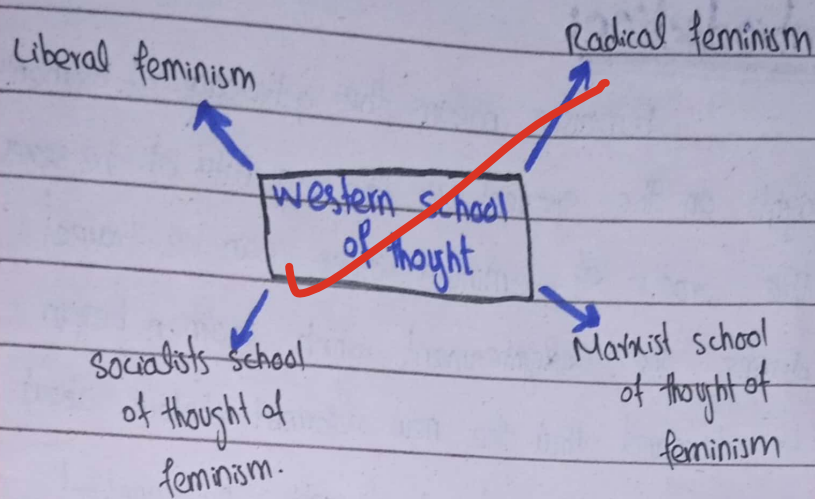 Liberal feminism
Radical feminism
Western school
of thoght
Socialists school
of thought of
feminism.
Marxist school
of thoght of
feminism